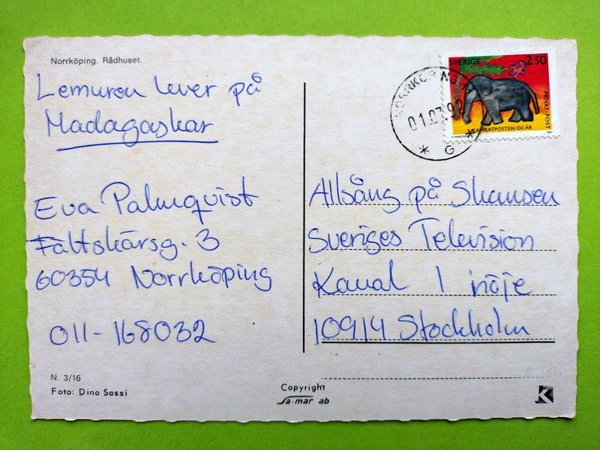 Norrköping. Rådhuset
Lemuren lever på
Madagaskar
Eva Palmquist
Fältskärsg. 3
60354 Norrköping
011-168032
N. 3/16
Foto: Dino Sassi
Copyright
Sa-mar ab
SVERIGE 2.50
KAMRATPOSTEN 100 ÅR
NORRKÖPING
01.07.92
* G *
Allsång på Skansen
Sveriges Television
Kanal 1 nöje
10914 Stockholm
K